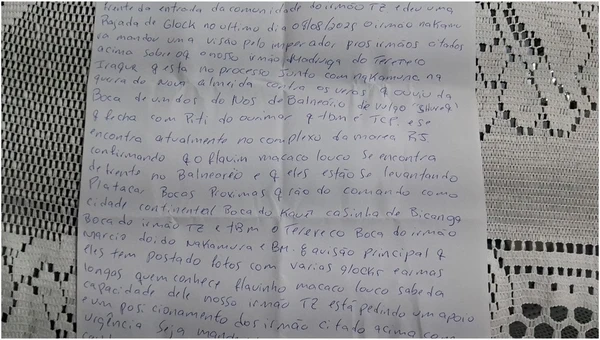 frente da entrada da comunidade do irmão TZ e deu uma
Rajada de Glock no ultimo dia 09/08/2025 O irmão nakamu
ra mandou uma visão pelo imperador pros irmãos citados
acima sobre q o nosso irmão Madruga do Terereco
Iraque q esta no processo Junto com nakamura na
guerra de Nova almeida contra os veros q ouviu da
Boca de um dos do Nos de Balneário de vulgo
q fecha com Piti do ourimar q tbm é TCP, e se
encontra atualmente no complexo da marea RJ
confirmando q o flavim macaco louco se encontra
de frente no Balneareo e q eles estão se levantando
Pra tacar Bocas Proximas q são do comando como
cidade continental Boca do Kauri casinha de Bicanga
Boca do irmão TZ e tBm o Terereco Boca do irmão
Marcio doido Nakamura e BM. E a visão principal q
eles tem postado fotos com varias glocks e armas
longas quem conhece flavinho macaco louco sabe da
capacidade dele nosso irmão TZ está pedindo um apoio
e um posicionamento dos irmão citado acima com
urgência seja